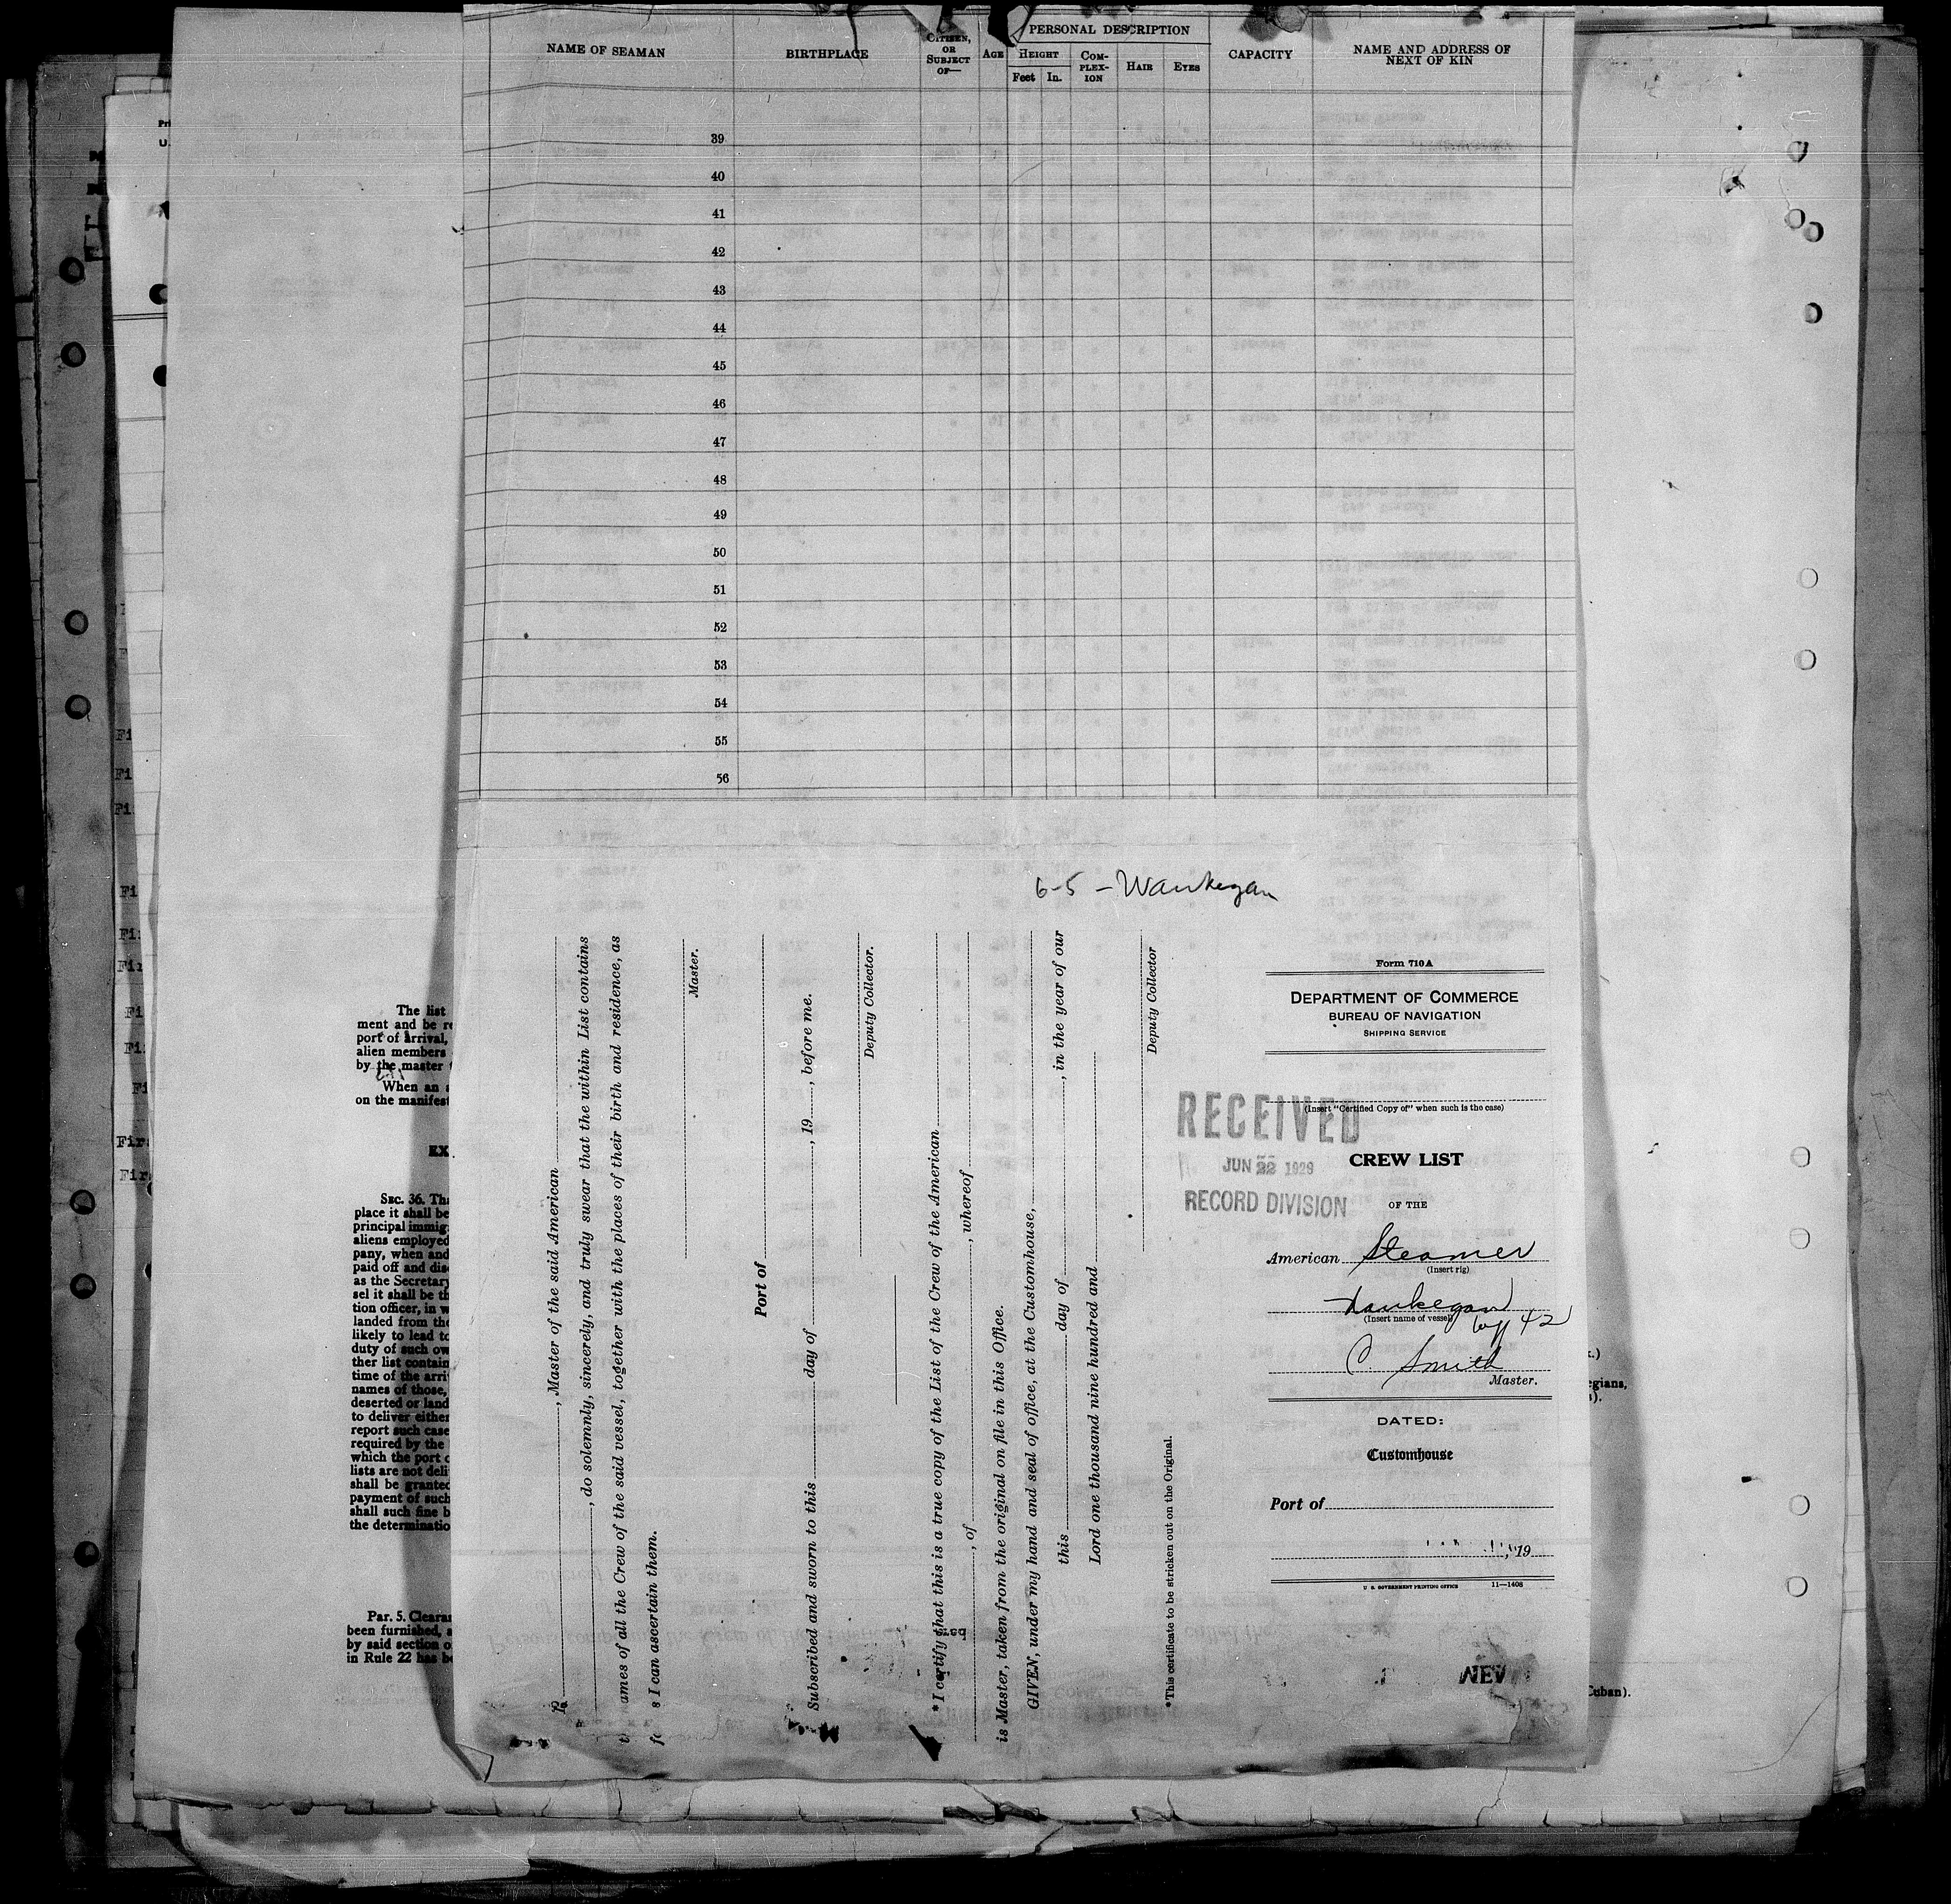 NAME OF SEAMAN
BIRTHPLACE
CITIZEN, OR SUBJECT OF—
AGE
PERSONAL DESCRIPTION
HEIGHT
Feet In.
COMPLEXION
HAIR
EYES
CAPACITY
NAME AND ADDRESS OF
NEXT OF KIN
39
40
41
42
43
44
45
46
47
48
49
50
51
52
53
54
55
56
6-5 - Waukegan
, Master of the said American
, do solemnly, sincerely, and truly swear that the within List contains
ames of all the Crew of the said vessel, together with the places of their birth and residence, as
s I can ascertain them.
Master.
Port of
Subscribed and sworn to this day of , 19 , before me.
Deputy Collector.
*I certify that this is a true copy of the List of the Crew of the American
, of , whereof
is Master, taken from the original on file in this Office.
GIVEN, under my hand and seal of office, at the Customhouse,
this day of , in the year of our
Lord one thousand nine hundred and
Deputy Collector
*This certificate to be stricken out on the Original.
Form 710A
DEPARTMENT OF COMMERCE
BUREAU OF NAVIGATION
SHIPPING SERVICE
(Insert "Certified Copy of" when such is the case)
RECEIVED
JUN 22 1929
RECORD DIVISION
CREW LIST
OF THE
American Steamer
(Insert rig)
Waukegan
(Insert name of vessel)
42
C Smith
Master.
DATED:
Customhouse
Port of
, 19
U. S. GOVERNMENT PRINTING OFFICE 11—1408
NEW
The list
ment and be re
port of arrival,
alien members
by the master
When an
on the manifest
EX
SEC. 36. Tha
place it shall be
principal immig
aliens employed
pany, when and
paid off and dis
as the Secretary
sel it shall be th
tion officer, in w
landed from the
likely to lead to
duty of such ow
ther list contain
time of the arri
names of those,
deserted or land
to deliver either
report such case
required by the
which the port o
lists are not deli
shall be granted
payment of such
shall such fine b
the determinatio
Par. 5. Cleara
been furnished,
by said section o
in Rule 22 has be
egians,
Cuban).